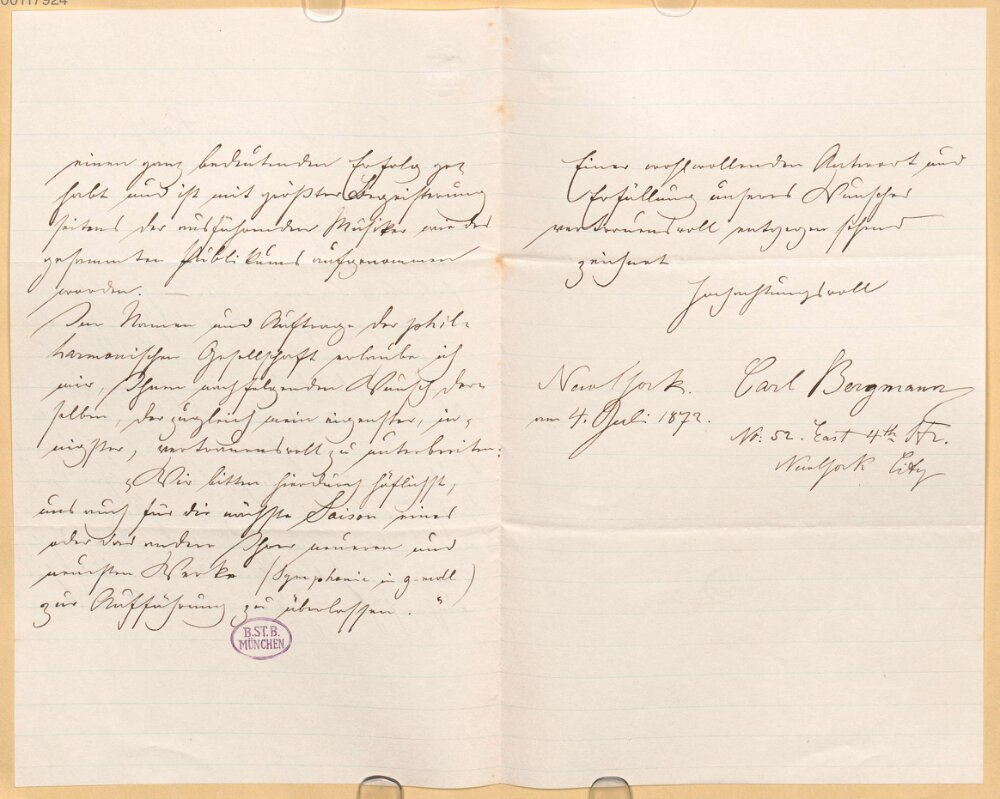 00117924
einen ganz bedeutenden Erfolg ge=
habt und ist mit größter Begeisterung
seitens der ausführenden Musiker wie des
gesammten Publikums aufgenommen
worden. —
Im Namen und Auftrage der phil=
harmonischen Gesellschaft erlaube ich
mir, Ihnen nachfolgenden Wunsch der=
selben, der zugleich mein eigenster, in=
nigster, vertrauensvoll zu unterbreiten:
„Wir bitten hierdurch höflichst,
uns auch für die nächste Saison eines
oder das andere Ihrer neueren und
neuesten Werke (Symphonie in g-moll)
zur Aufführung zu überlassen."
B.ST.B.
MÜNCHEN
Einer wohlwollenden Antwort und
Erfüllung unseres Wunsches
vertrauensvoll entgegen sehend
zeichnet
Hochachtungsvoll
Carl Bergmann
NewYork.
am 4. Juli 1872.
No: 52. East 4th Str.
NewYork City